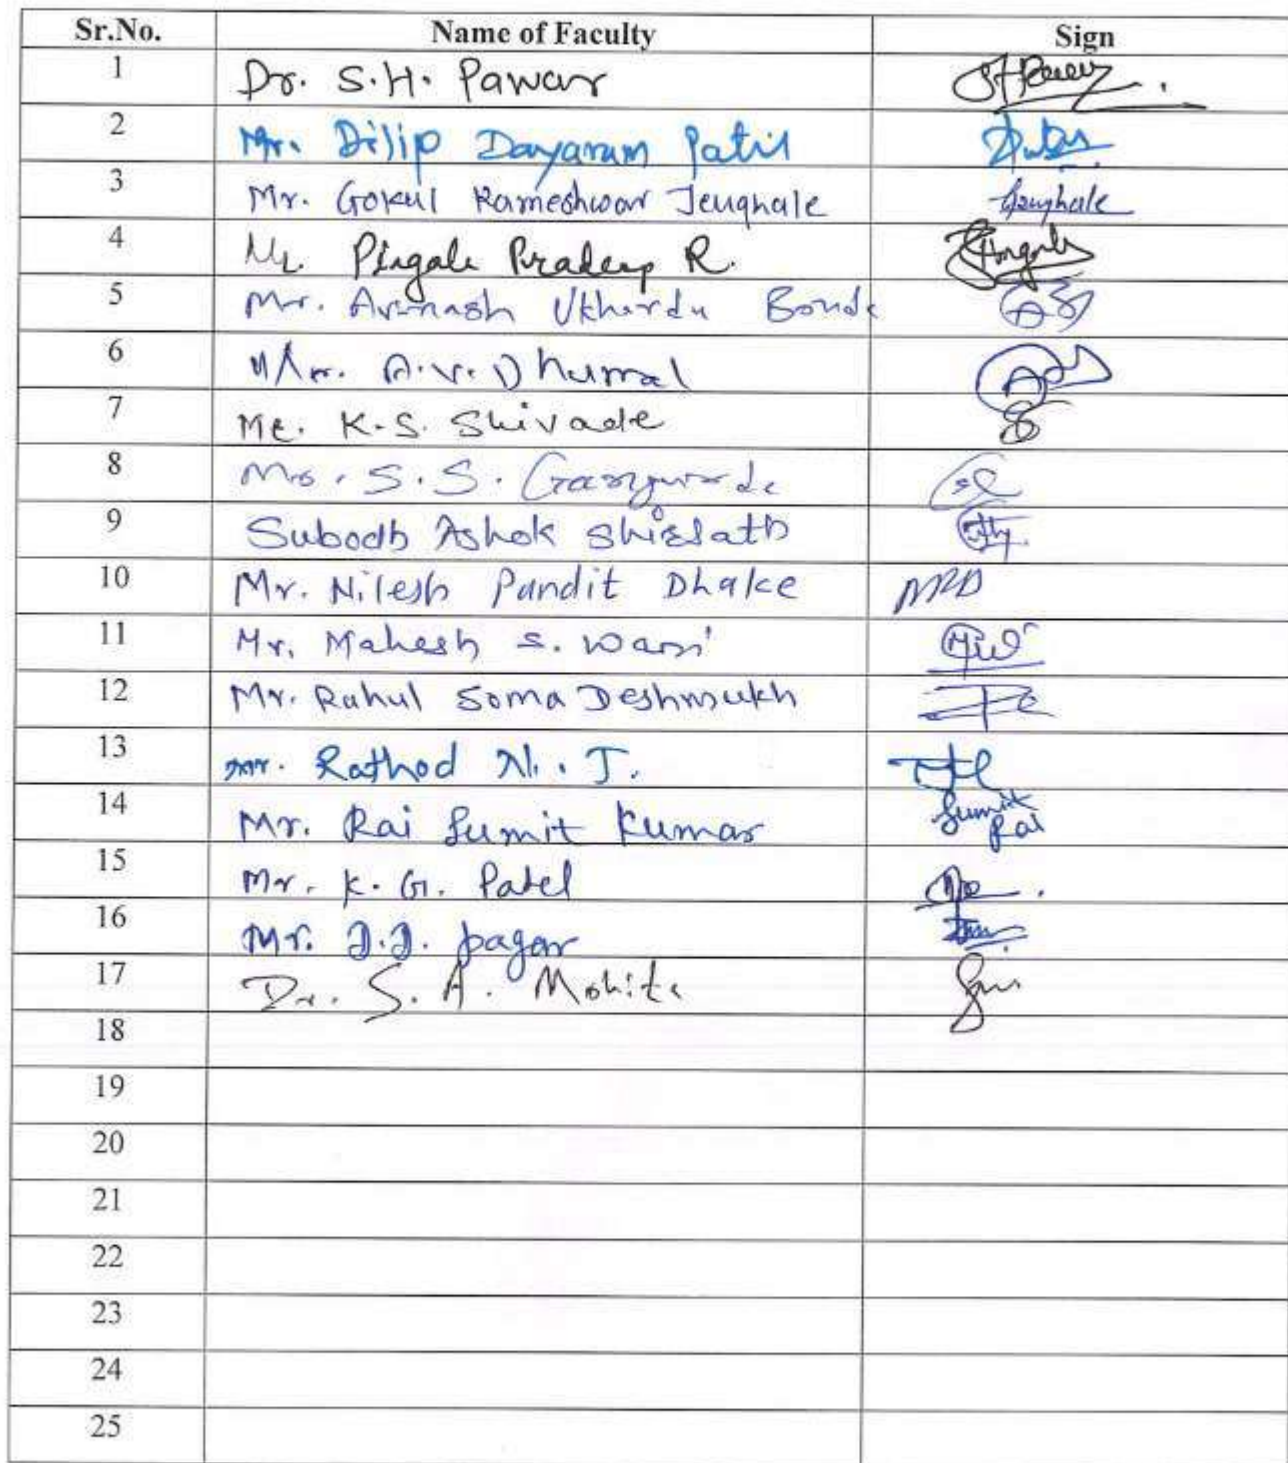 Sr.No. Name of Faculty Sign
1 Dr. S.H. Pawar
2 Mr. Dilip Dayaram Patil
3 Mr. Gokul Rameshwar Jeughale Jeughale
4 Mr. Pingale Pradeep R.
5 Mr. Avinash Ukhardu Bonde
6 Mr. A.V. Dhumal
7 Mr. K.S. Shivade
8 S.S. Gangurde
9 Subodh Ashok Shirsath
10 Mr. Nilesh Pandit Dhake NPD
11 Mr. Mahesh S. Wani
12 Mr. Rahul Soma Deshmukh
13 Mr. Rathod N. J.
14 Mr. Rai Sumit Kumar Sumit Rai
15 Mr. K. G. Patel
16 Mr. J.J. Pagar
17 Dr. S. A. Mohite
18
19
20
21
22
23
24
25